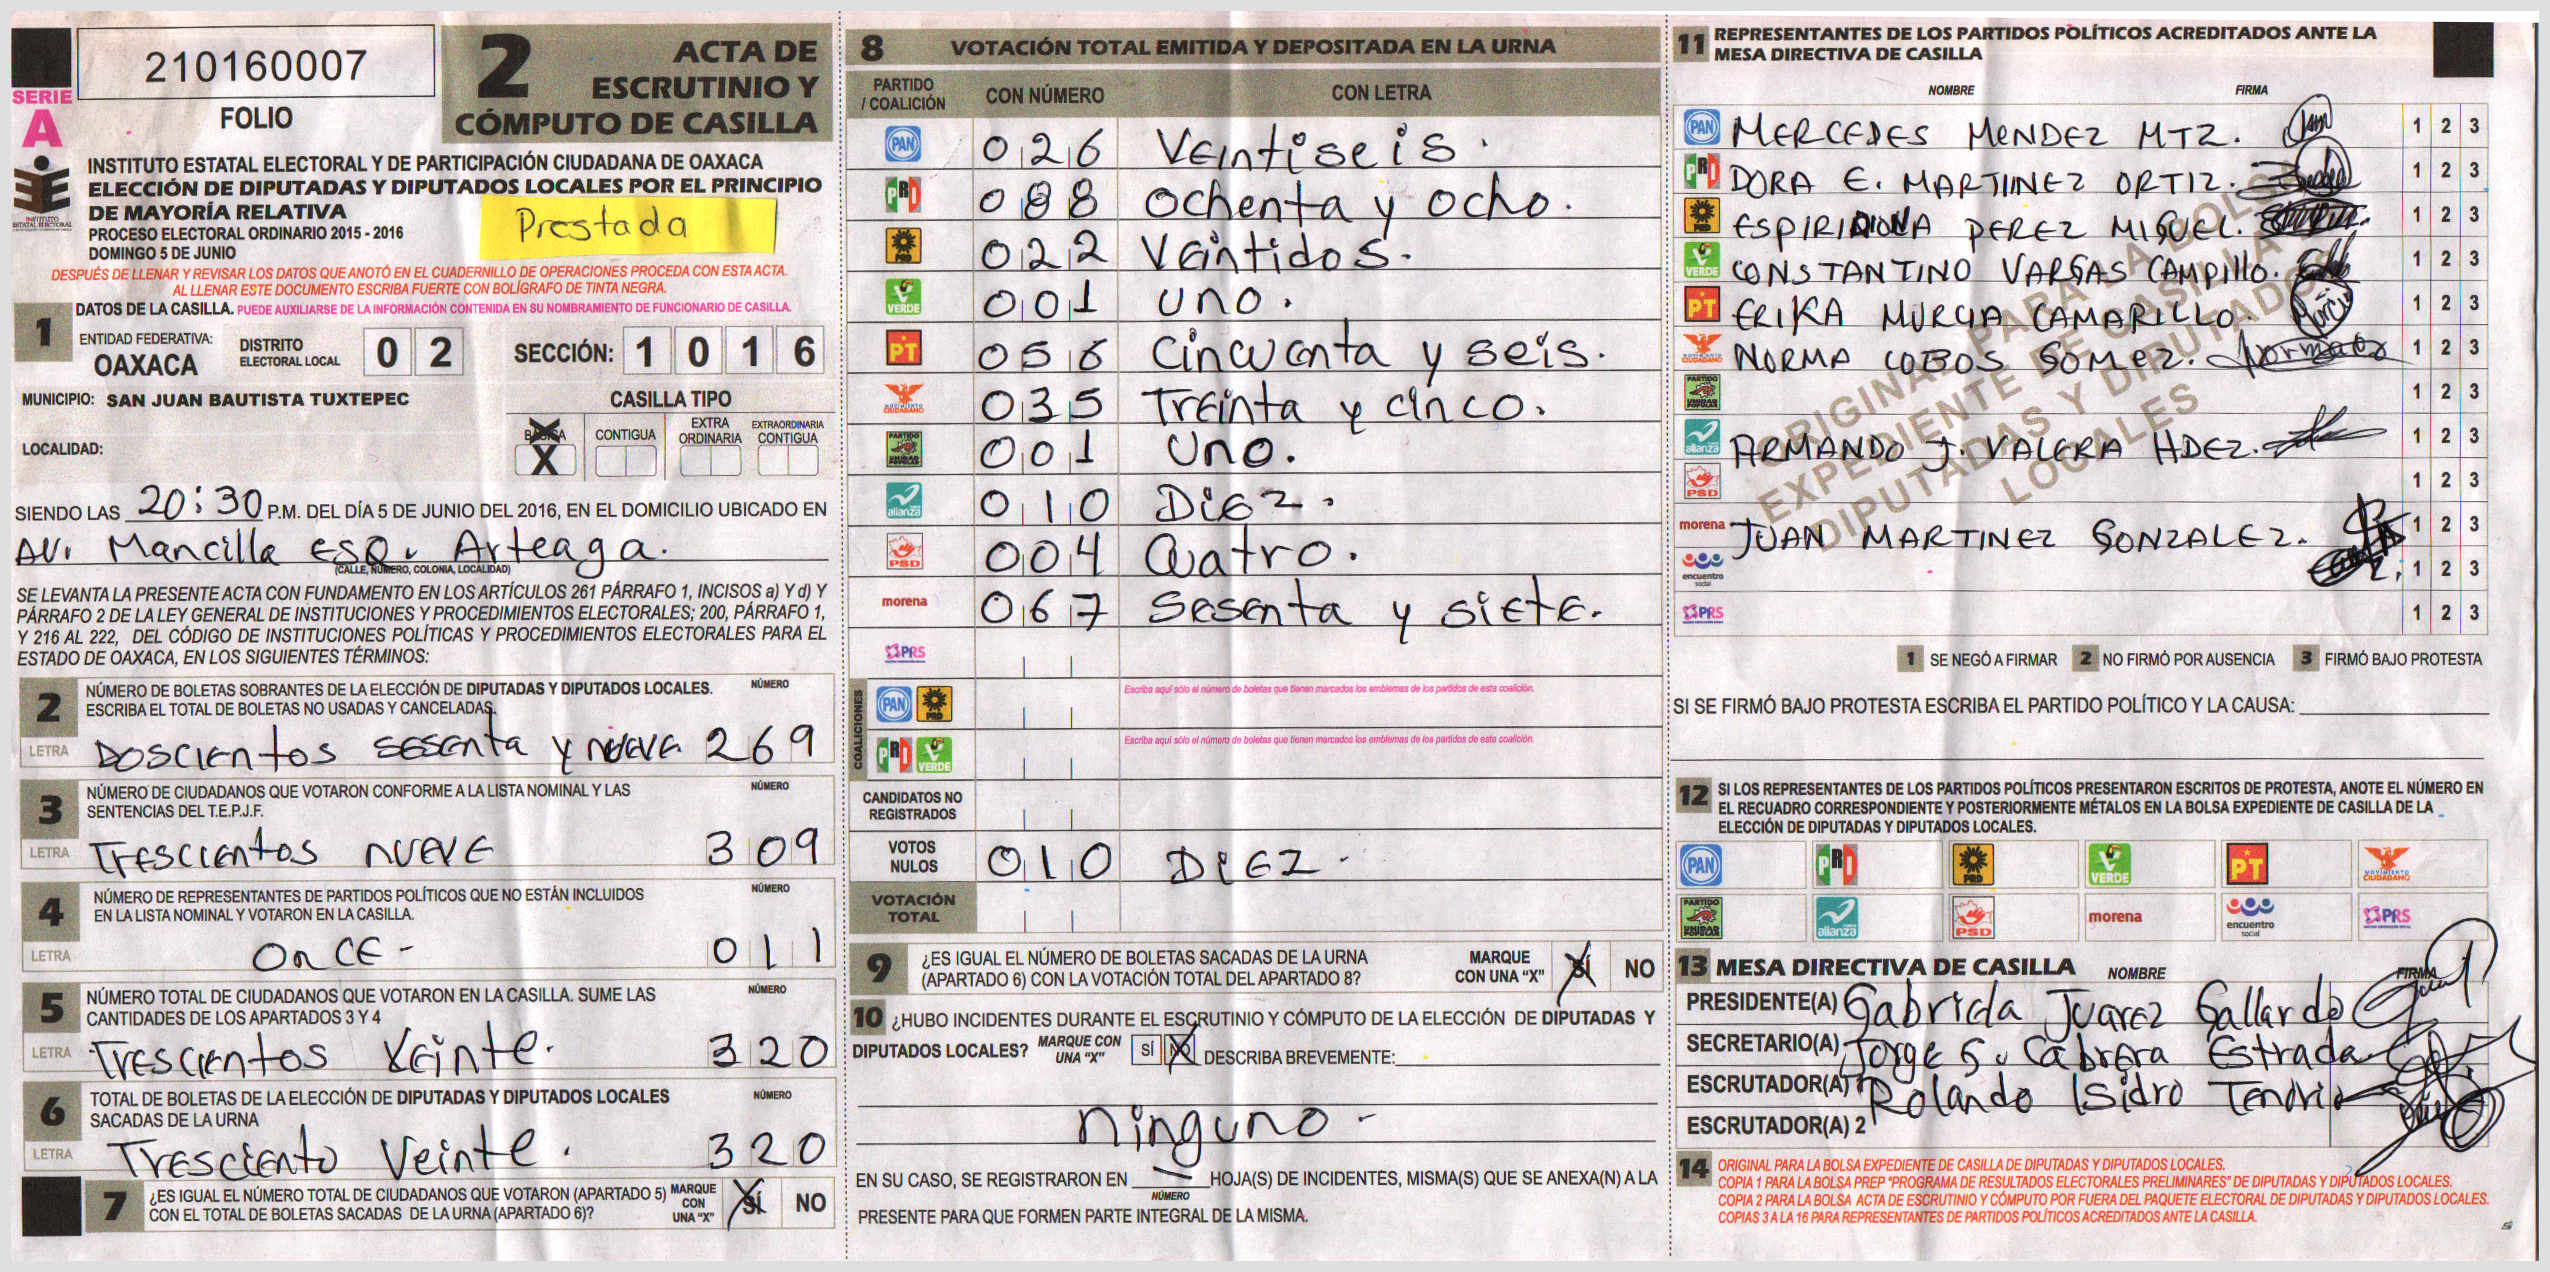 210160007
FOLIO
SERIE
A
2 ACTA DE
ESCRUTINIO Y
CÓMPUTO DE CASILLA
INSTITUTO ESTATAL ELECTORAL Y DE PARTICIPACIÓN CIUDADANA DE OAXACA
ELECCIÓN DE DIPUTADAS Y DIPUTADOS LOCALES POR EL PRINCIPIO
DE MAYORÍA RELATIVA
PROCESO ELECTORAL ORDINARIO 2015 - 2016
DOMINGO 5 DE JUNIO
Prestada
DESPUÉS DE LLENAR Y REVISAR LOS DATOS QUE ANOTÓ EN EL CUADERNILLO DE OPERACIONES PROCEDA CON ESTA ACTA.
AL LLENAR ESTE DOCUMENTO ESCRIBA FUERTE CON BOLÍGRAFO DE TINTA NEGRA.
1 DATOS DE LA CASILLA. PUEDE AUXILIARSE DE LA INFORMACIÓN CONTENIDA EN SU NOMBRAMIENTO DE FUNCIONARIO DE CASILLA.
ENTIDAD FEDERATIVA: OAXACA DISTRITO ELECTORAL LOCAL 0 2 SECCIÓN: 1 0 1 6
MUNICIPIO: SAN JUAN BAUTISTA TUXTEPEC
CASILLA TIPO
BÁSICA X CONTIGUA EXTRA ORDINARIA EXTRAORDINARIA CONTIGUA
LOCALIDAD:
SIENDO LAS 20:30 P.M. DEL DÍA 5 DE JUNIO DEL 2016, EN EL DOMICILIO UBICADO EN
AV. Mancilla ESQ. Arteaga.
(CALLE, NÚMERO, COLONIA, LOCALIDAD)
SE LEVANTA LA PRESENTE ACTA CON FUNDAMENTO EN LOS ARTÍCULOS 261 PÁRRAFO 1, INCISOS a) Y d) Y
PÁRRAFO 2 DE LA LEY GENERAL DE INSTITUCIONES Y PROCEDIMIENTOS ELECTORALES; 200, PÁRRAFO 1,
Y 216 AL 222, DEL CÓDIGO DE INSTITUCIONES POLÍTICAS Y PROCEDIMIENTOS ELECTORALES PARA EL
ESTADO DE OAXACA, EN LOS SIGUIENTES TÉRMINOS:
2 NÚMERO DE BOLETAS SOBRANTES DE LA ELECCIÓN DE DIPUTADAS Y DIPUTADOS LOCALES. NÚMERO
ESCRIBA EL TOTAL DE BOLETAS NO USADAS Y CANCELADAS.
LETRA Doscientos sesenta y nueve 269
3 NÚMERO DE CIUDADANOS QUE VOTARON CONFORME A LA LISTA NOMINAL Y LAS NÚMERO
SENTENCIAS DEL T.E.P.J.F.
LETRA Trescientos nueve 309
4 NÚMERO DE REPRESENTANTES DE PARTIDOS POLÍTICOS QUE NO ESTÁN INCLUIDOS NÚMERO
EN LA LISTA NOMINAL Y VOTARON EN LA CASILLA.
LETRA Once - 011
5 NÚMERO TOTAL DE CIUDADANOS QUE VOTARON EN LA CASILLA. SUME LAS NÚMERO
CANTIDADES DE LOS APARTADOS 3 Y 4
LETRA Trescientos Veinte. 320
6 TOTAL DE BOLETAS DE LA ELECCIÓN DE DIPUTADAS Y DIPUTADOS LOCALES NÚMERO
SACADAS DE LA URNA
LETRA Tresciento Veinte. 320
7 ¿ES IGUAL EL NÚMERO TOTAL DE CIUDADANOS QUE VOTARON (APARTADO 5) MARQUE CON UNA "X" SÍ NO
CON EL TOTAL DE BOLETAS SACADAS DE LA URNA (APARTADO 6)?
8 VOTACIÓN TOTAL EMITIDA Y DEPOSITADA EN LA URNA
PARTIDO / COALICIÓN CON NÚMERO CON LETRA
PAN 026 Veintiseis.
PRI 088 Ochenta y ocho.
PRD 022 Veintidos.
VERDE 001 uno.
PT 056 Cincuenta y seis.
MOVIMIENTO CIUDADANO 035 Treinta y cinco.
PARTIDO UNIDAD POPULAR 001 Uno.
alianza 010 Diez.
PSD 004 Cuatro.
morena 067 sesenta y siete.
PRS
COALICIONES
PAN PRD Escriba aquí sólo el número de boletas que tienen marcados los emblemas de los partidos de esta coalición.
PRI VERDE Escriba aquí sólo el número de boletas que tienen marcados los emblemas de los partidos de esta coalición.
CANDIDATOS NO REGISTRADOS
VOTOS NULOS 010 Diez -
VOTACIÓN TOTAL
9 ¿ES IGUAL EL NÚMERO DE BOLETAS SACADAS DE LA URNA MARQUE CON UNA "X" SÍ NO
(APARTADO 6) CON LA VOTACIÓN TOTAL DEL APARTADO 8?
10 ¿HUBO INCIDENTES DURANTE EL ESCRUTINIO Y CÓMPUTO DE LA ELECCIÓN DE DIPUTADAS Y
DIPUTADOS LOCALES? MARQUE CON UNA "X" SÍ NO DESCRIBA BREVEMENTE:
ninguno -
EN SU CASO, SE REGISTRARON EN HOJA(S) DE INCIDENTES, MISMA(S) QUE SE ANEXA(N) A LA
NÚMERO
PRESENTE PARA QUE FORMEN PARTE INTEGRAL DE LA MISMA.
11 REPRESENTANTES DE LOS PARTIDOS POLÍTICOS ACREDITADOS ANTE LA
MESA DIRECTIVA DE CASILLA
NOMBRE FIRMA
PAN MERCEDES MENDEZ MTZ. 1 2 3
PRI DORA E. MARTINEZ ORTIZ. 1 2 3
PRD ESPIRIDIONA PEREZ MIGUEL. 1 2 3
VERDE CONSTANTINO VARGAS CAMPILLO. 1 2 3
PT ERIKA MURCIA CAMARILLO. 1 2 3
MOVIMIENTO CIUDADANO NORMA COBOS GOMEZ. 1 2 3
PARTIDO UNIDAD POPULAR 1 2 3
alianza ARMANDO J. VALERA HDEZ. 1 2 3
PSD 1 2 3
morena JUAN MARTINEZ GONZALEZ. 1 2 3
encuentro social 1 2 3
PRS 1 2 3
ORIGINAL PARA LA BOLSA
EXPEDIENTE DE CASILLA
DIPUTADAS Y DIPUTADOS
LOCALES
1 SE NEGÓ A FIRMAR 2 NO FIRMÓ POR AUSENCIA 3 FIRMÓ BAJO PROTESTA
SI SE FIRMÓ BAJO PROTESTA ESCRIBA EL PARTIDO POLÍTICO Y LA CAUSA:
12 SI LOS REPRESENTANTES DE LOS PARTIDOS POLÍTICOS PRESENTARON ESCRITOS DE PROTESTA, ANOTE EL NÚMERO EN
EL RECUADRO CORRESPONDIENTE Y POSTERIORMENTE MÉTALOS EN LA BOLSA EXPEDIENTE DE CASILLA DE LA
ELECCIÓN DE DIPUTADAS Y DIPUTADOS LOCALES.
PAN PRI PRD VERDE PT MOVIMIENTO CIUDADANO
PARTIDO UNIDAD POPULAR alianza PSD morena encuentro social PRS
13 MESA DIRECTIVA DE CASILLA NOMBRE FIRMA
PRESIDENTE(A) Gabriela Juarez Gallardo
SECRETARIO(A) Jorge S. Cabrera Estrada
ESCRUTADOR(A) 1 Rolando Isidro Tenorio
ESCRUTADOR(A) 2
14 ORIGINAL PARA LA BOLSA EXPEDIENTE DE CASILLA DE DIPUTADAS Y DIPUTADOS LOCALES.
COPIA 1 PARA LA BOLSA PREP "PROGRAMA DE RESULTADOS ELECTORALES PRELIMINARES" DE DIPUTADAS Y DIPUTADOS LOCALES.
COPIA 2 PARA LA BOLSA ACTA DE ESCRUTINIO Y CÓMPUTO POR FUERA DEL PAQUETE ELECTORAL DE DIPUTADAS Y DIPUTADOS LOCALES.
COPIAS 3 A LA 16 PARA REPRESENTANTES DE PARTIDOS POLÍTICOS ACREDITADOS ANTE LA CASILLA.